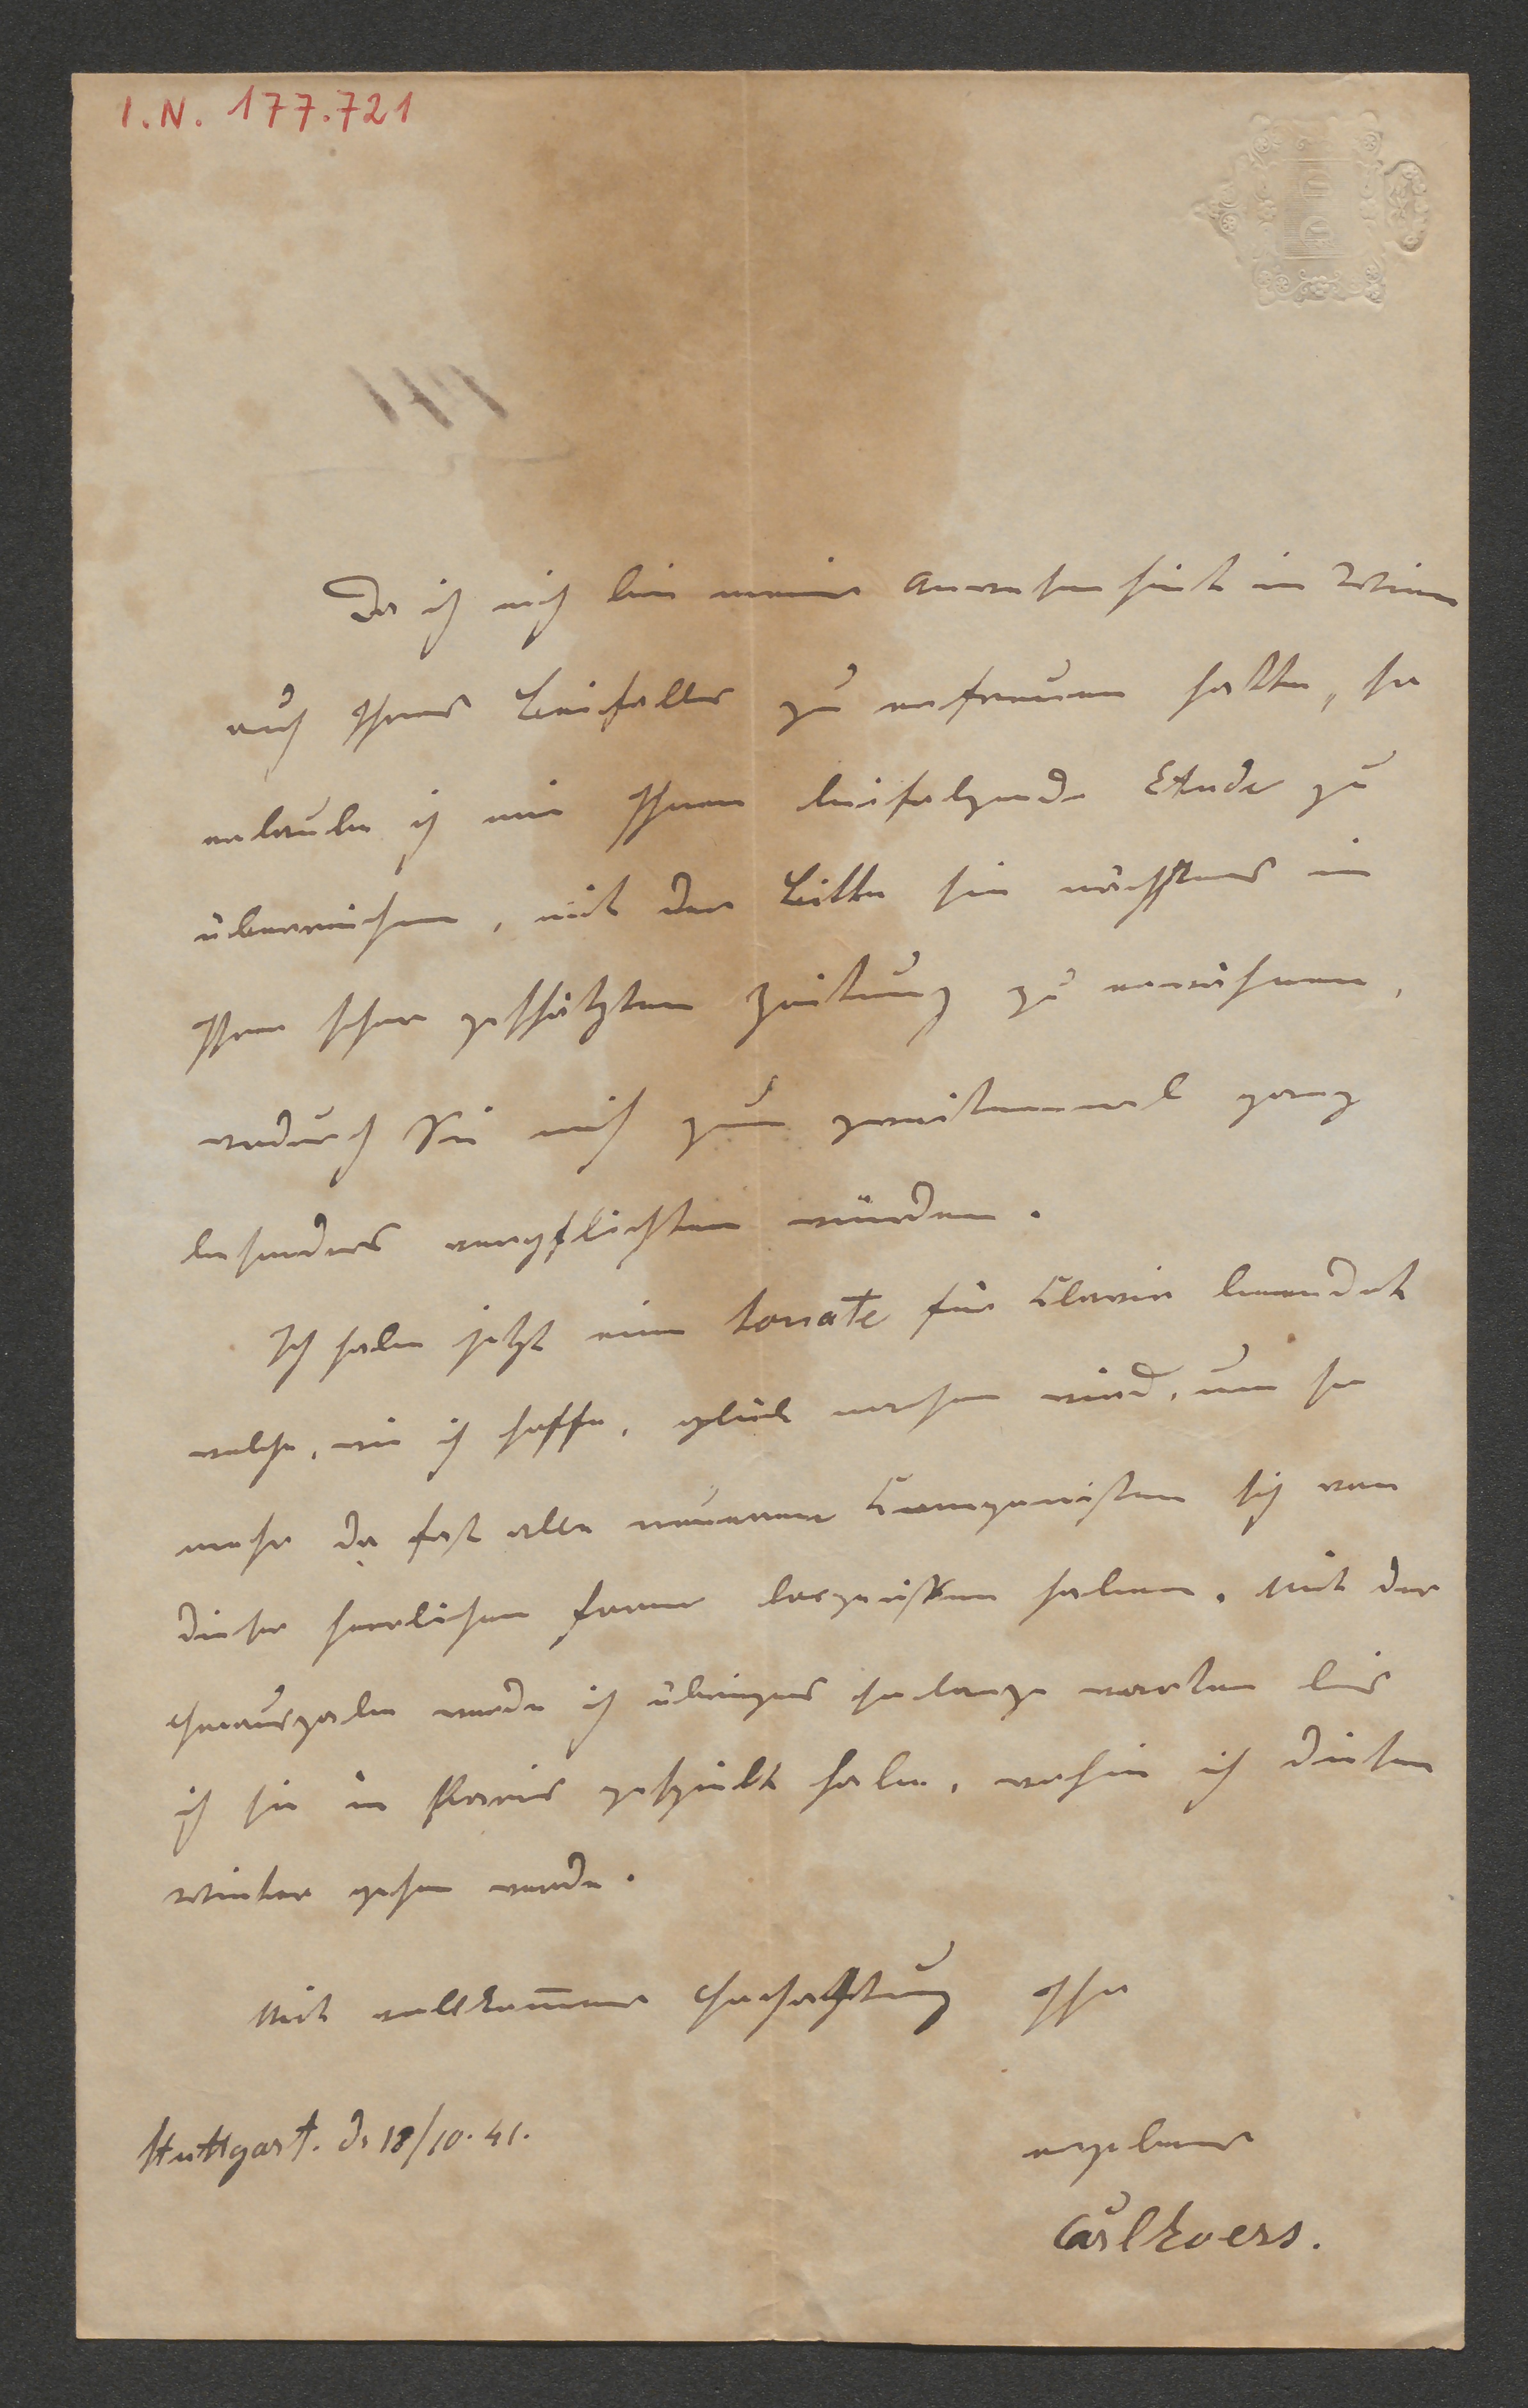 I.N. 177.721
Da ich mich bei meiner Anwesenheit in Wien
auch Ihres Beifalles zu erfreuen hatte, so
erlaube ich mir Ihnen beifolgende Etude zu
überreichen, mit der Bitte sie nächstens in
Ihrer sehr geschätzten Zeitung zu erwähnen,
wodurch Sie mich zum zweitenmal ganz
besonders verpflichten würden.
Ich habe jetzt eine Sonate für Clavier beendet
welche, wie ich hoffe, Glück machen wird, um so
mehr da fast alle neueren Componisten sich von
dieser herrlichen Form losgerissen haben. Mit der
Herausgabe werde ich übrigens solange warten bis
ich sie in Paris gespielt habe, wohin ich diesen
Winter gehen werde.
Mit vollkommner Hochachtung Ihr
Stuttgart. d. 18/10. 41.
ergebener
Carl Evers.